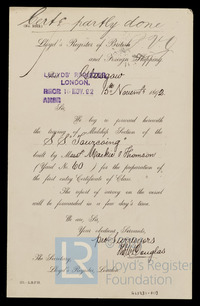 Certs partly done
Lloyd's Register of British
and Foreign Shipping
Glasgow
LLOYD'S REGISTER
LONDON.
RECD 1 NOV. 92
ANSD
November 1892
Sir,
We beg to proceed herewith
the tracing of Midship Section of the
S.S.
built by Messrs Mackie & Thomson
(Yard No. 60) for the preparation of
the first entry Certificate of Class.
The report of survey on the vessel
will be forwarded in a few day's time.
We are, Sir,
Your obedient Servants,
The Secretary
Lloyd's Register, London
Lloyd's Register
Foundation